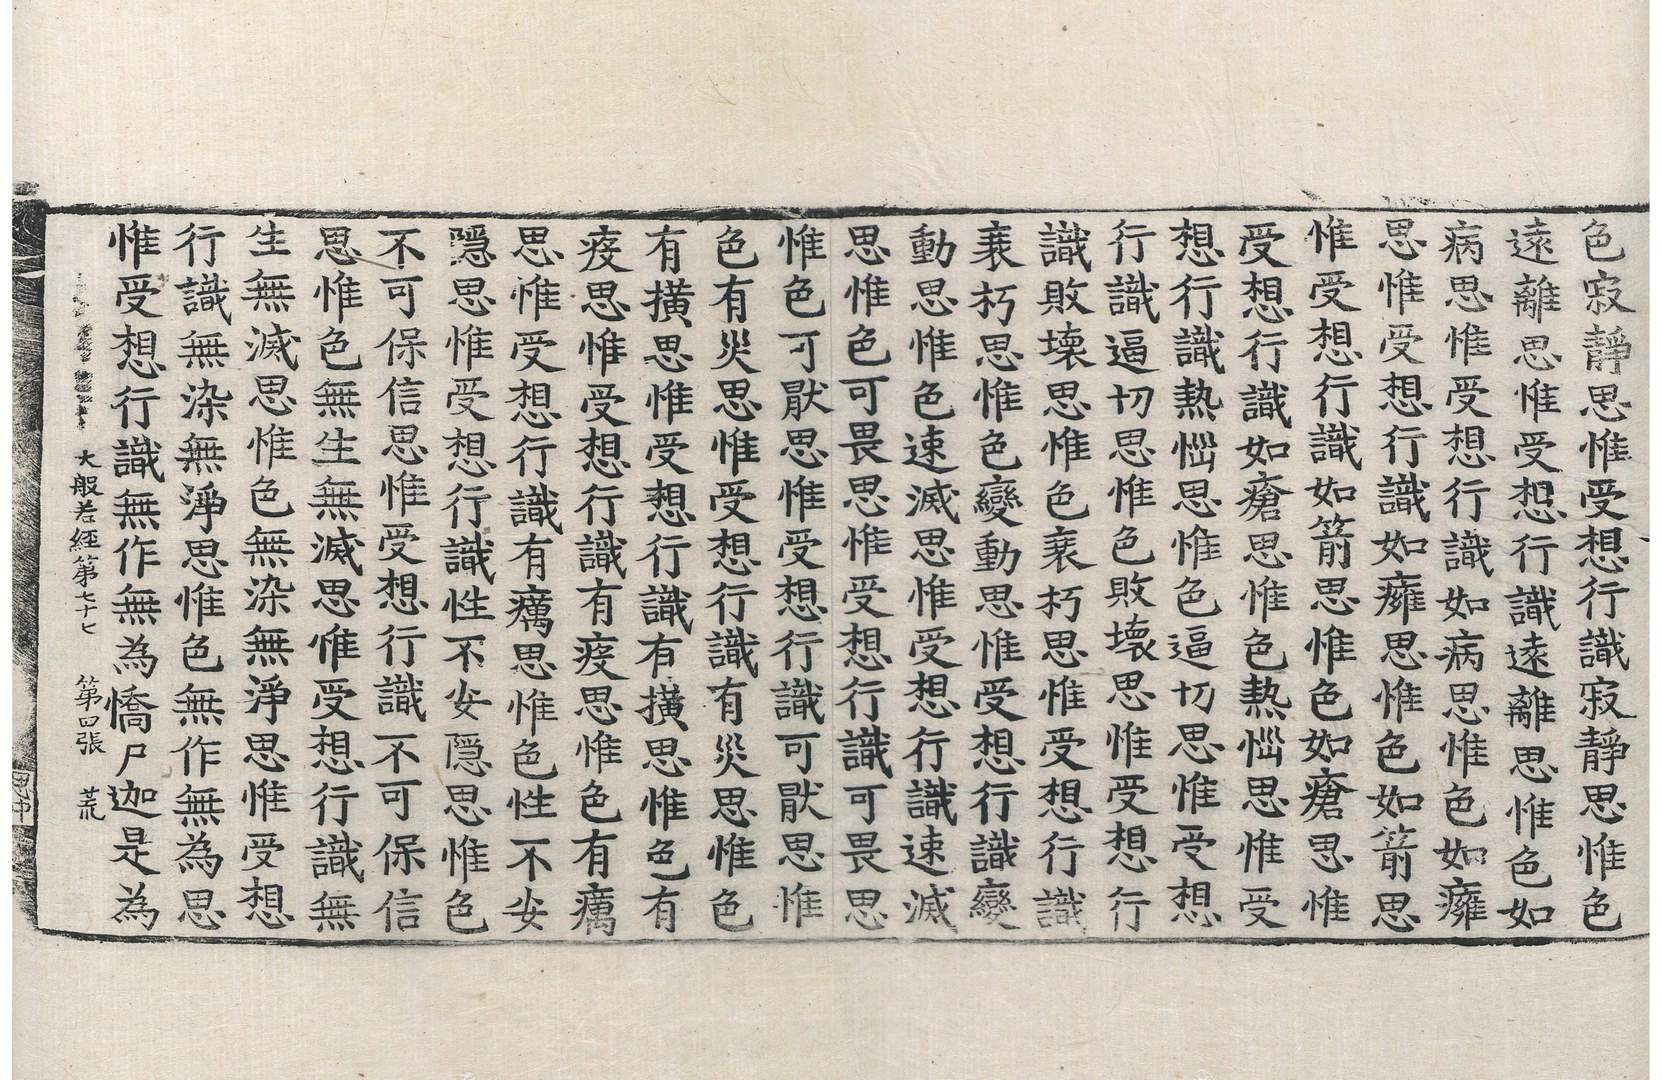 色寂靜思惟受想行識寂靜思惟色
遠離思惟受想行識遠離思惟色如
病思惟受想行識如病思惟色如癰
思惟受想行識如癰思惟色如箭思
惟受想行識如箭思惟色如瘡思惟
受想行識如瘡思惟色熱惱思惟受
想行識熱惱思惟色逼切思惟受想
行識逼切思惟色敗壞思惟受想行
識敗壞思惟色衰朽思惟受想行識
衰朽思惟色變動思惟受想行識變
動思惟色速滅思惟受想行識速滅
思惟色可畏思惟受想行識可畏思
惟色可猒思惟受想行識可猒思惟
色有災思惟受想行識有災思惟色
有撗思惟受想行識有撗思惟色有
疫思惟受想行識有疫思惟色有癘
思惟受想行識有癘思惟色性不安
隱思惟受想行識性不安隱思惟色
不可保信思惟受想行識不可保信
思惟色無生無滅思惟受想行識無
生無滅思惟色無染無淨思惟受想
行識無染無淨思惟色無作無為思
惟受想行識無作無為憍尸迦是為
大般若經第七十七 第四張 荒